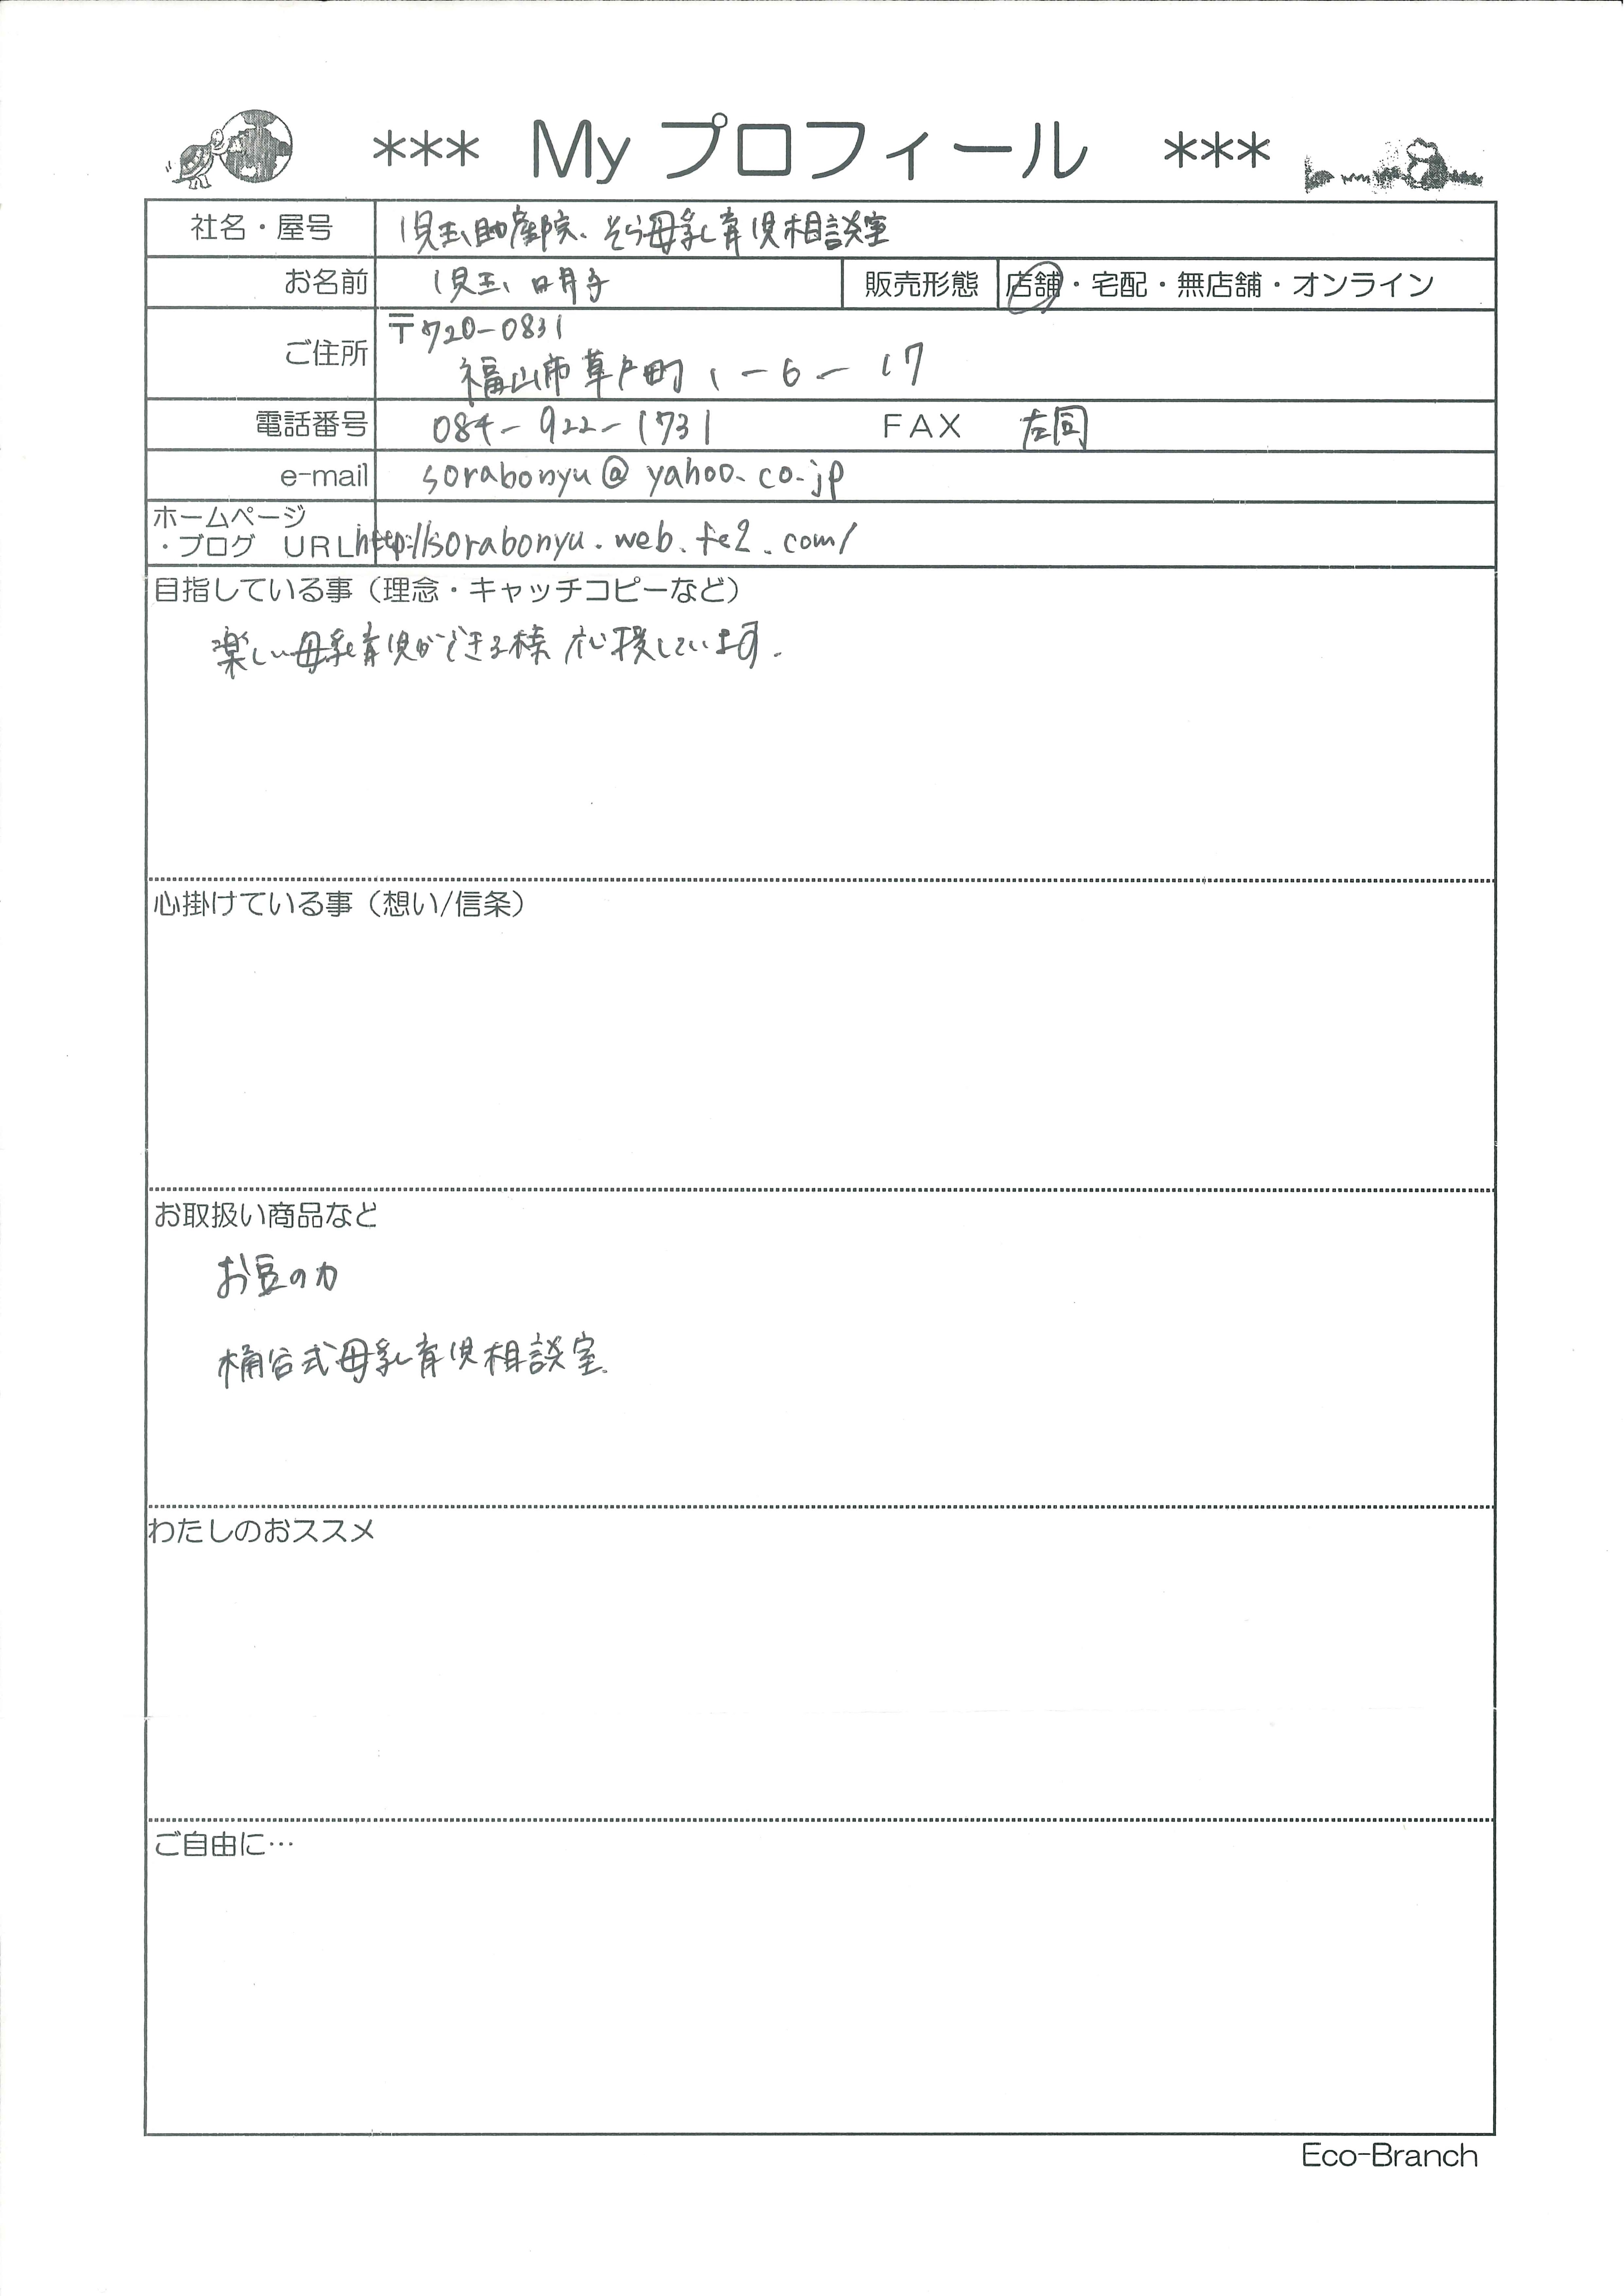 *** My プロフィール ***
社名・屋号 児玉助産院、そら母乳育児相談室
お名前 児玉 明子 販売形態 店舗・宅配・無店舗・オンライン
ご住所 〒720-0831
福山市草戸町 1-6-17
電話番号 084-922-1731 FAX 左同
e-mail sorabonyu@yahoo.co.jp
ホームページ
・ブログ URL http://sorabonyu.web.fc2.com/
目指している事（理念・キャッチコピーなど）
楽しい母乳育児ができる様 応援しています.
心掛けている事（想い/信条）
お取扱い商品など
お豆の力
桶谷式母乳育児相談室.
わたしのおススメ
ご自由に…
Eco-Branch